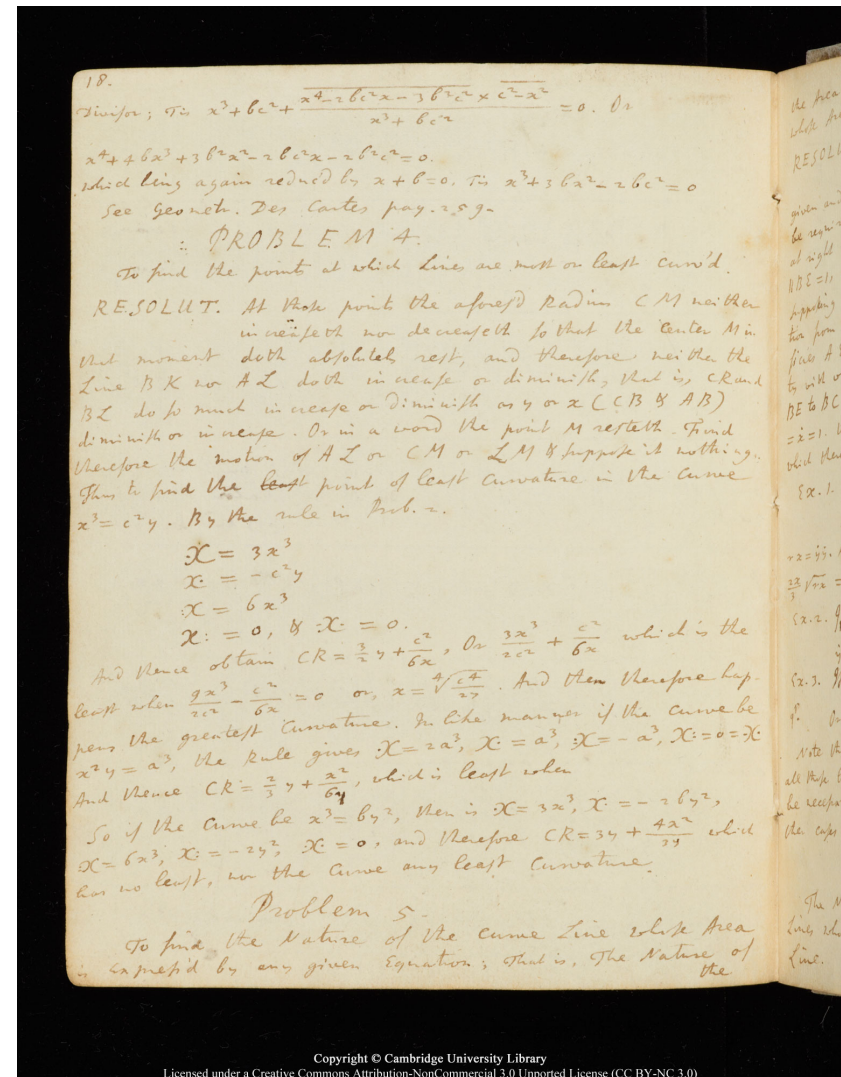 18.
Divisor; Tis x³+bc²+ x⁴−2bc²x−3b²c² × c²−x² / x³+bc² =0. Or
x⁴+4bx³+3b²x²−2bc²x−2b²c²=0.
which being again reduced by x+b=0, Tis x³+3bx²−2bc²=0
See Geometr. Des Cartes pag. 259.
: PROBLEM 4.
To find the points at which Lines are most or least curv'd.
RESOLUT. At those points the aforesd Radius CM neither
increaseth nor decreaseth so that the Center M in
that moment doth absolutely rest, and therefore neither the
Line BK nor AL doth increase or diminish, that is, CR and
BL do so much increase or Diminish as y or x (CB & AB)
diminish or increase. Or in a word the point M resteth. Find
therefore the motion of AL or CM or LM & suppose it nothing.
Thus to find the least point of least Curvature in the Curve
x³=c²y. By the rule in Prob. 2.
·X = 3x³
X· = −c²y
:X = 6x³
X: = 0, & ·X· = 0.
And thence obtain CR = 3/2 y + c²/6x, Or 3x³/2c² + c²/6x which is the
least when 9x³/2c² − c²/6x = 0 or, x = ∜c⁴/27. And then therefore hap-
pens the greatest Curvature. In like manner if the Curve be
x²y = a³, the Rule gives ·X=2a³, X·=a³, :X=−a³, X:=0=·X·
And thence CR = 2/3 y + x²/6y, which is least when
So if the Curve be x³=by², then is ·X=3x³, X·=−2by²,
:X=6x³, X:=−2y², ·X·=0, and therefore CR=3y + 4x²/3y which
has no least, nor the Curve any least Curvature.
Problem 5.
To find the Nature of the Curve Line whose Area
is Express'd by any given Equation; That is, The Nature of
the
the Area
RESOLU
given and
be requir
at right
BE=1,
supposing
tion from
BE to BC
=ẋ=1.
which then
Ex. 1.
Ex. 2.
Ex. 3.
Note th
all those
be necessa
the cases
The N
Lines who
Line.
Copyright © Cambridge University Library
Licensed under a Creative Commons Attribution-NonCommercial 3.0 Unported License (CC BY-NC 3.0)